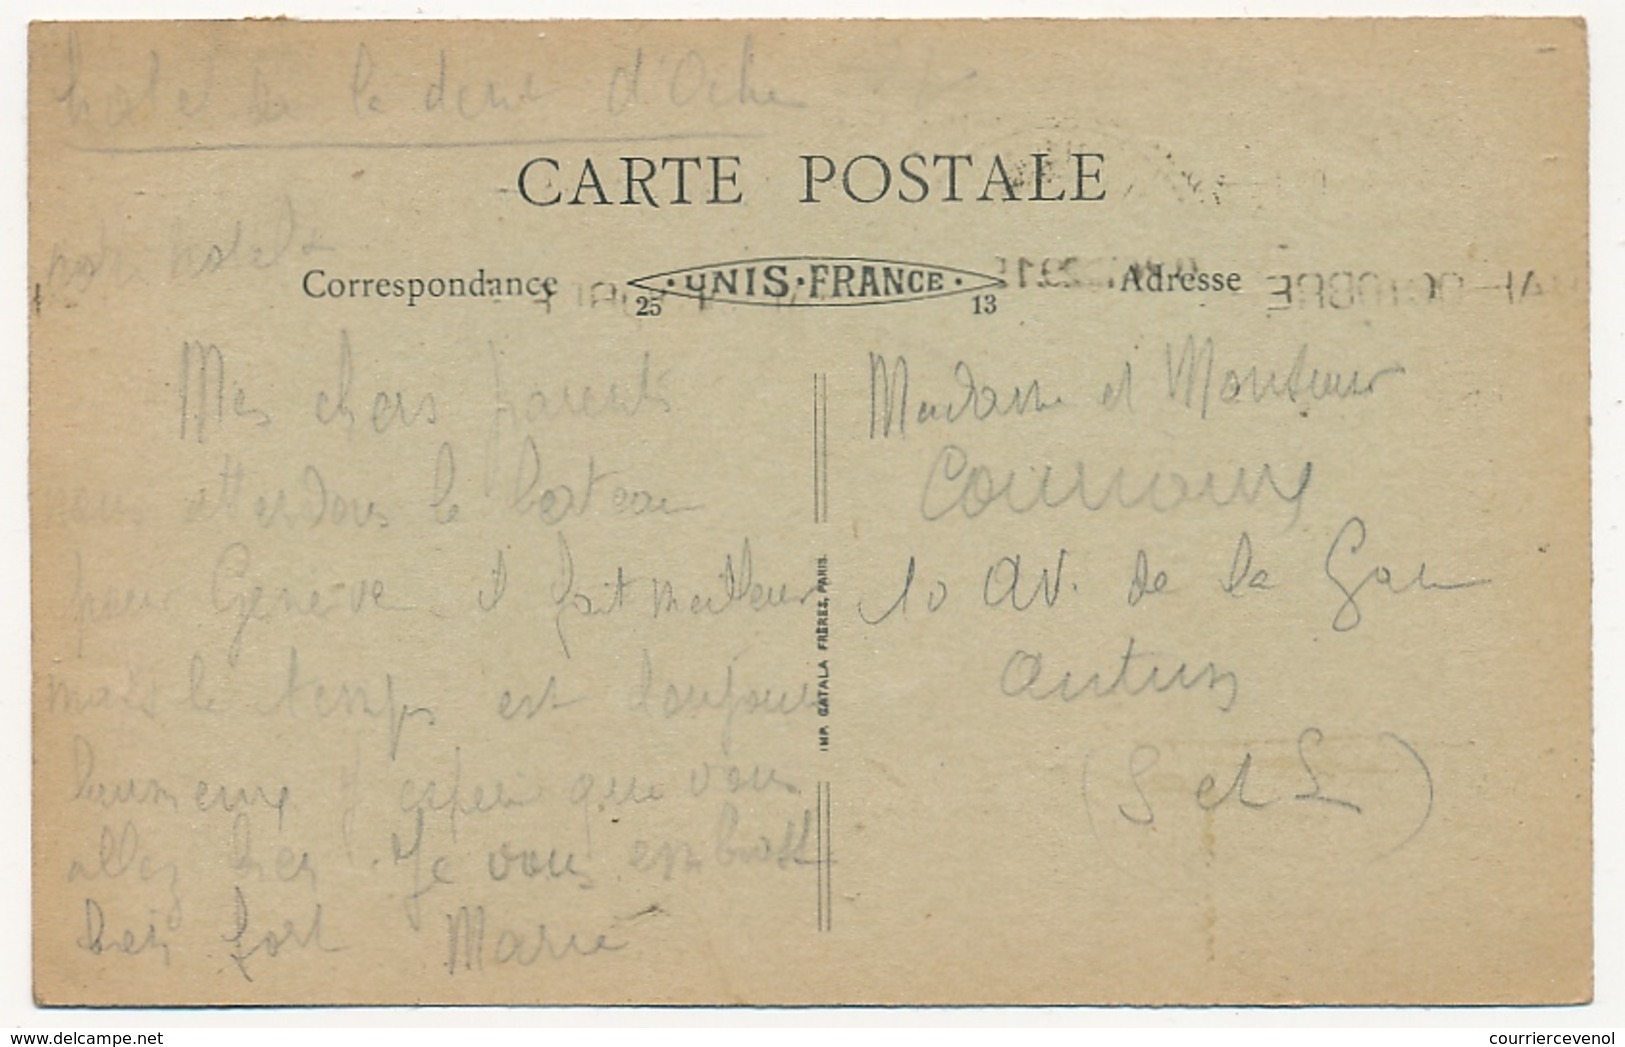 hotel de la dent d'Oche
CARTE POSTALE
notre hotel
Correspondance
UNIS·FRANCE
25 13
Adresse
MAI-OCTOBRE
Mes chers parents
nous attendons le bateau
pour Genève il fait meilleur
mais le temps est toujours
brumeux J'espère que vous
allez bien. Je vous embrasse
bien fort Marie
IMP. CATALA FRÈRES, PARIS.
Madame et Monsieur
10 av. de la Gare
Autun
(S et L)
courriercevenol
www.delcampe.net